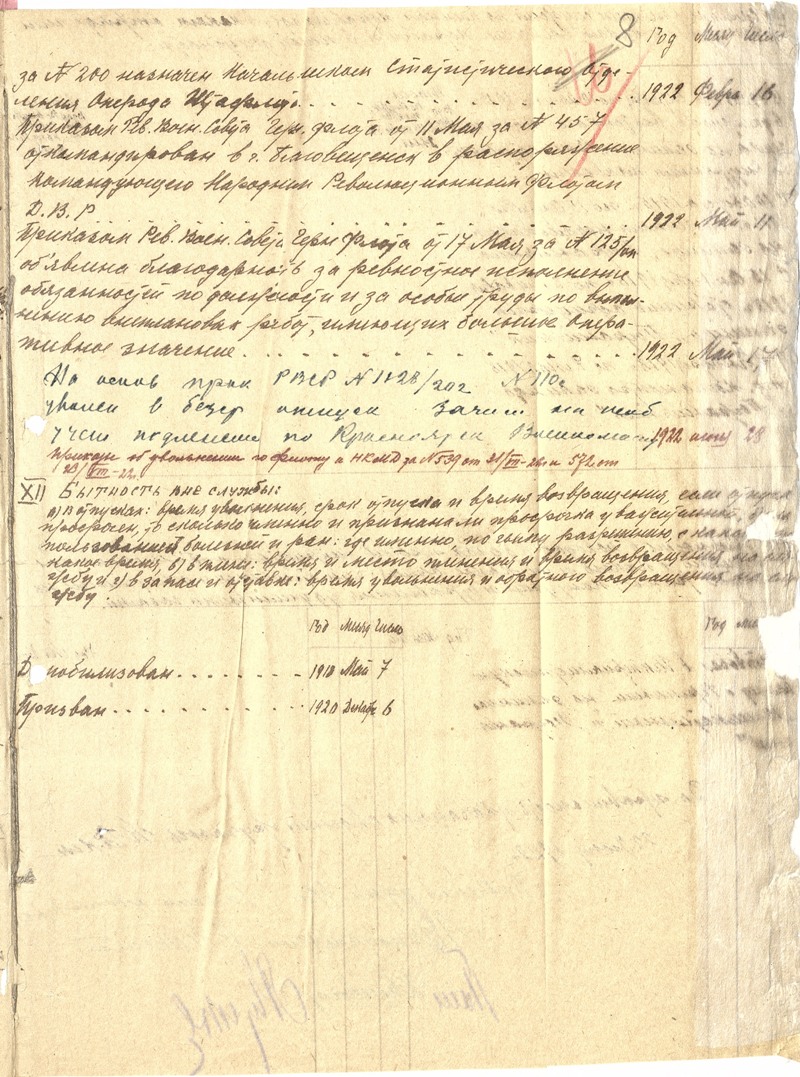 8 Год Месяц Число
за № 200 назначен Начальником Статистического Отде-
ления Операда Штафлот . . . 1922 Февра 16
Приказом Рев. Воен. Совета Черн. флота от 11 Мая за № 457
откомандирован в г. Благовещенск в распоряжение
Командующего Народным Революционным Флотом
Д. В. Р . . . 1922 Май 11
Приказом Рев. Воен. Совета Черн Флота от 17 Мая за № 125/
об'явлена благодарность за ревностное исполнение
обязанностей по должности и за особые труды по выпол-
нению внеплановых работ, имеющих большие Опера-
тивное значение . . . 1922 Май 17
На основ прик РВСР № 1128/202 № 110
уволен в бесср отпуск зачисл на особ
учет по Красноярск Военкомат 1922 июня 28
Приказы об увольнении по флоту и НКМД за № 539 от 21/VII-22 и 572 от
23/VIII-22.
XII Бытность вне службы:
а) в отпусках: время увольнения, срок отпуска и время возвращения, если отпуск
просрочен, то сколько именно и признана ли просрочка уважительной,
пользовании болезней и ран: где именно, по чьему разрешению, с
какое время, в) в плену: время и место пленения и время возвращения на
службу и г) в запасе и отставке: время увольнения и обратного возвращения на
службу.
Год Месяц Число
Д мобилизован . . . 1918 Май 7
Призван . . . 1920 Декабр 6